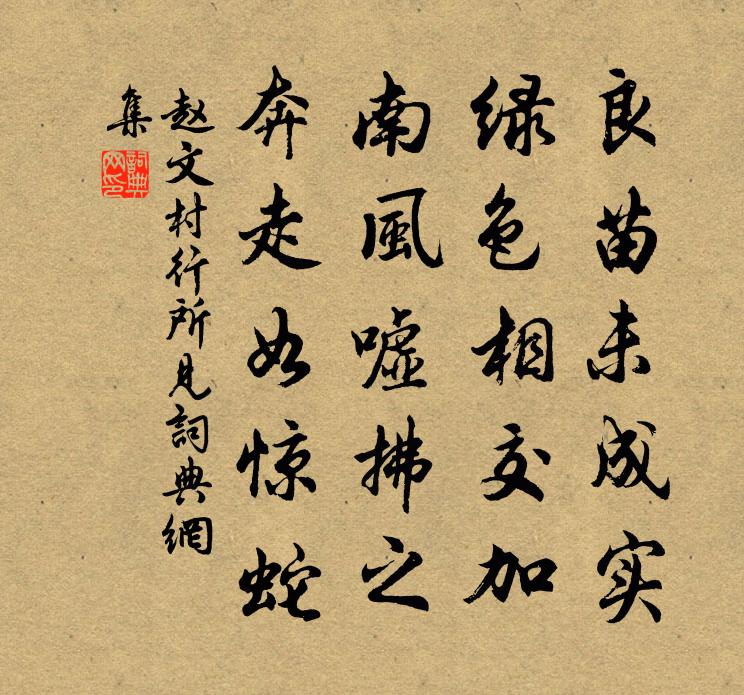 良苗未成实
绿色相交加
南風嘘拂之
奔走如惊蛇
赵文村行所見詞典網
集
詞典网印